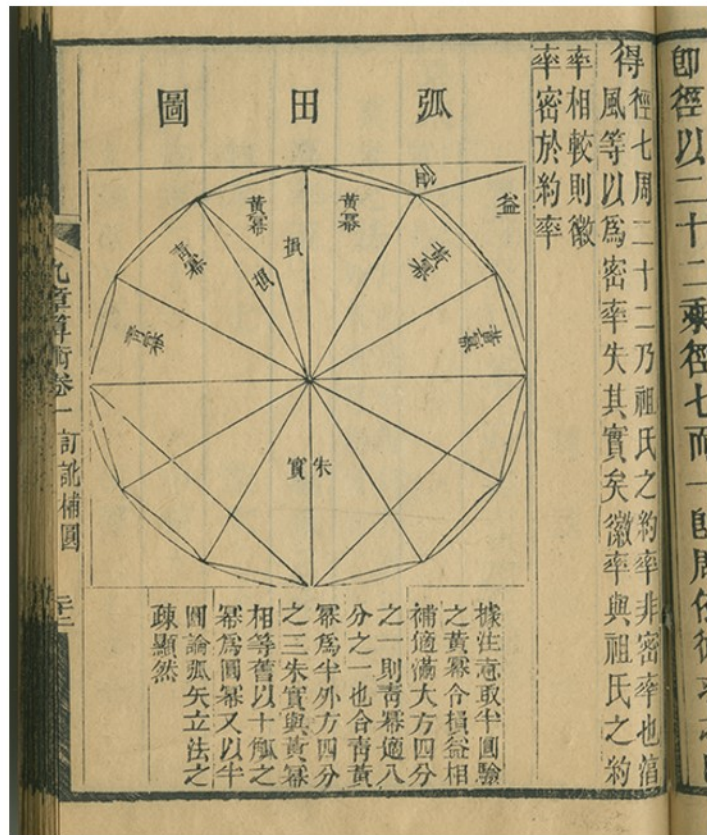 即徑以二十二乘徑七而一即周
得徑七周二十二乃祖氏之約率非密率也
風等以爲密率失其實矣徽率與祖氏之約
率相較則徽
率密於約率
弧田圖
益
益
黃冪
黃冪
黃冪
黃冪
損
損
青冪
青冪
朱實
據注意取半圓驗
之黃冪令損益相
補適滿大方四分
之一則靑冪適八
分之一也合靑黃
冪爲半外方四分
之三朱實與黃冪
相等舊以十觚之
冪爲圓冪又以半
圓論弧矢立法之
疎顯然
九章算術卷一
訂訛補圖